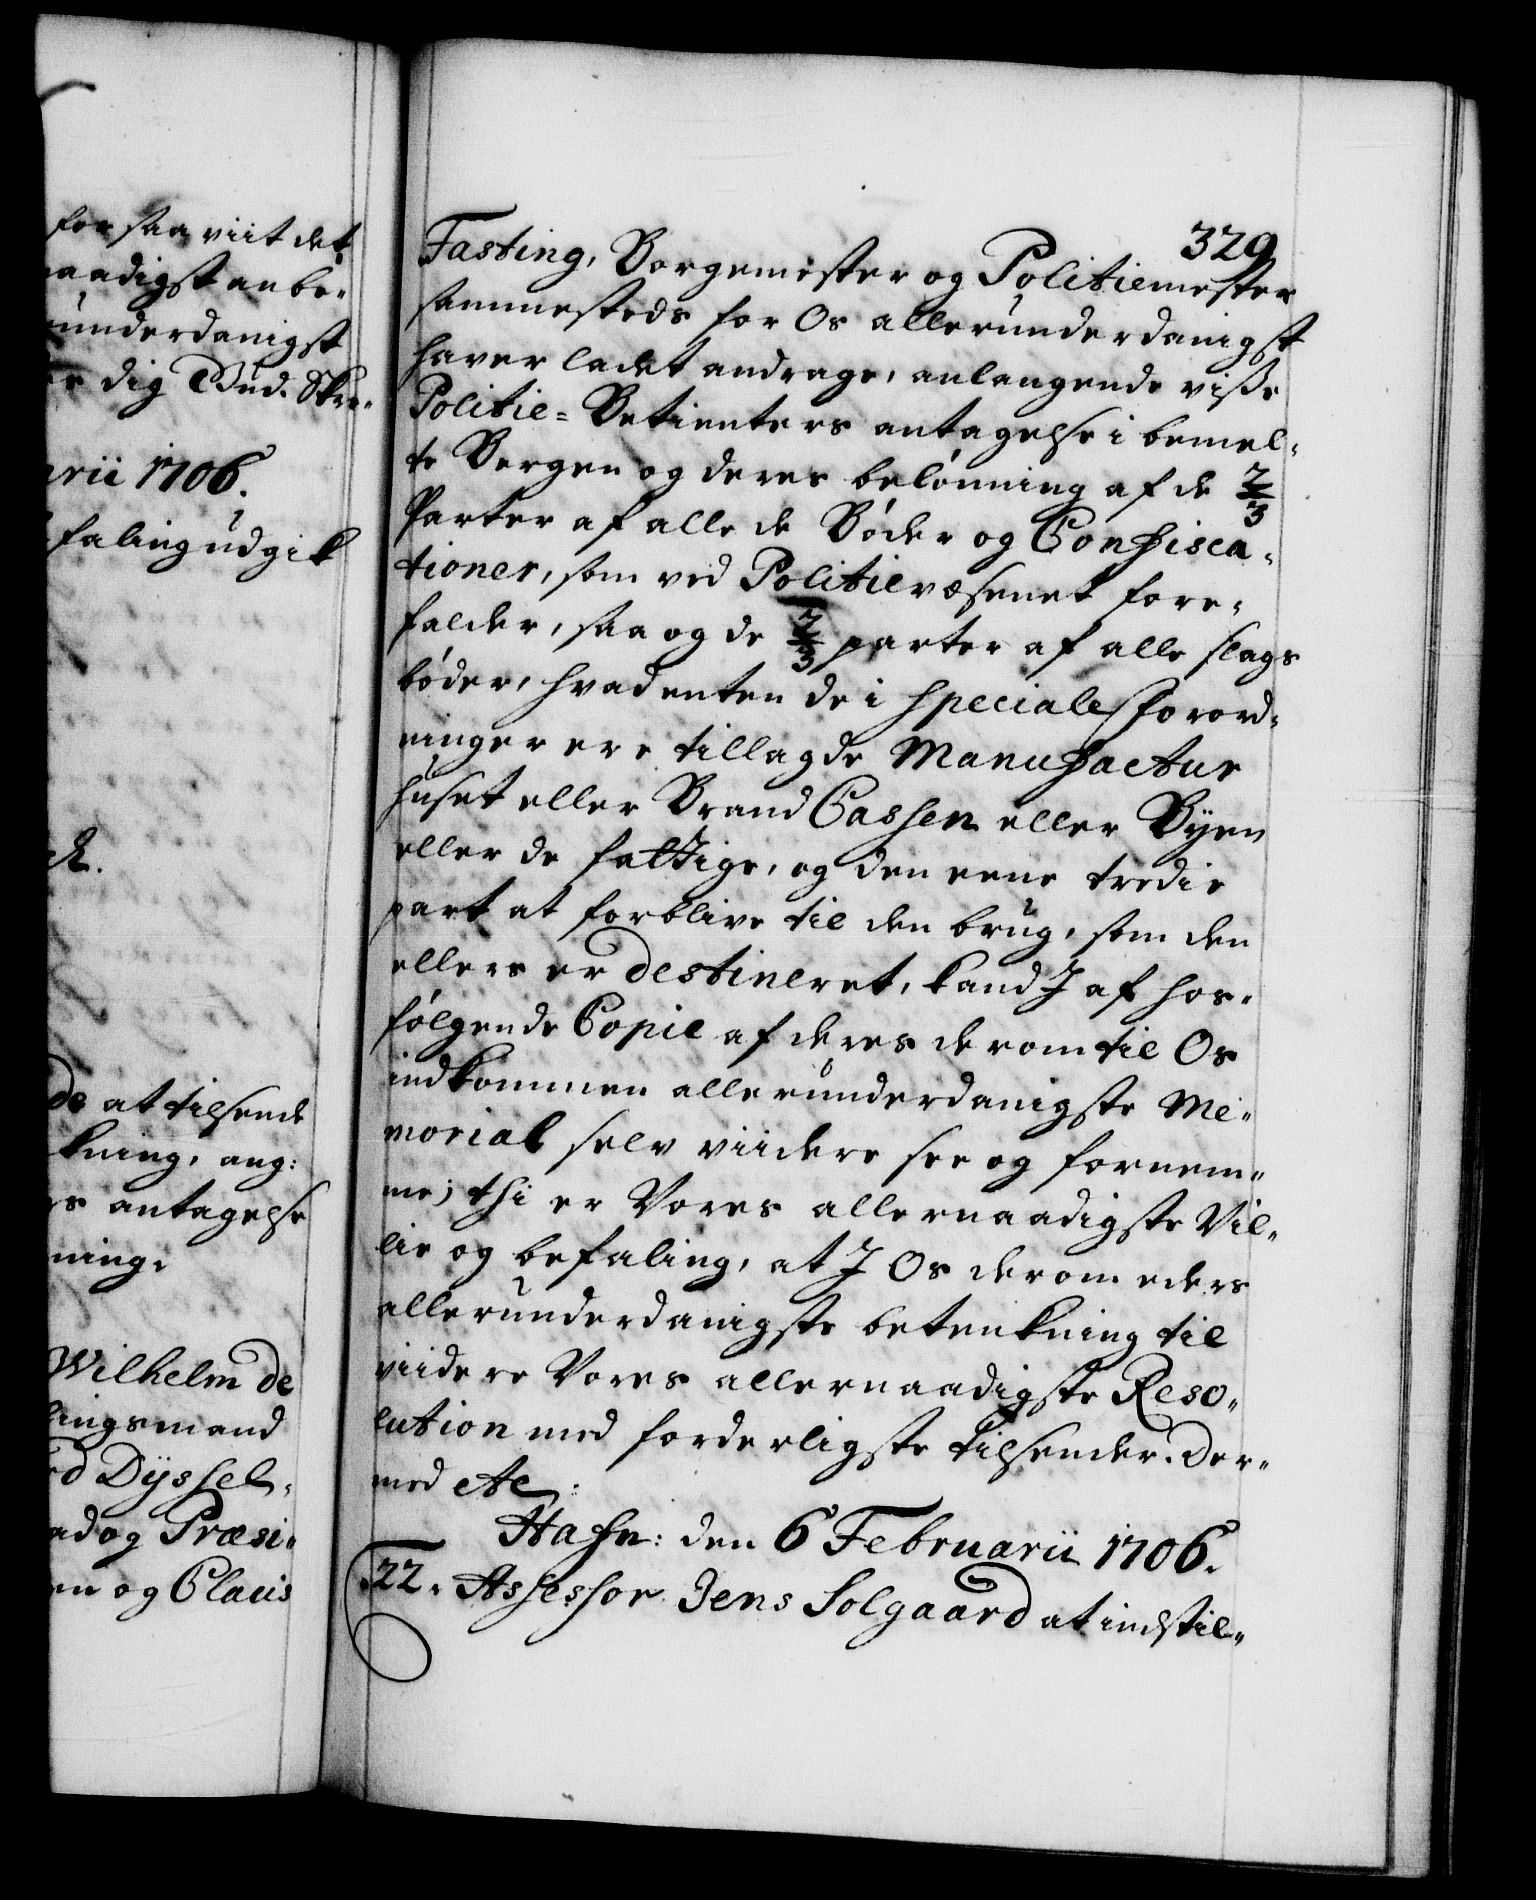 for saa viit det
naadigst anbe-
underdanigst
dig Gud. Skre-
arii 1706.
faling udgik
de at tilsende
kning, ang:
antagelse
ning.
Wilhelm de
lingsmand
Dÿssel,
ad og Præsi-
en og Claus
329
Fasting, Borgemester og Politiemester
sammesteds for Os allerunderdanigst
haver ladet andrage, anlangende visse
Politie-Betienters antagelse i bemel-
te Bergen og deres belönning af de 2/3
Parter af alle de Böder og Confisca-
tioner, som ved Politievæsenet fore-
falder, saa og de 2/3 parter af alle slags
böder, hvadenten de i speciale forord-
ninger ere tillagde Manufactur
huset eller Brand Cassen eller Byen
eller de fattige, og den eene tredie
part at forblive til den brug, som den
ellers er destineret, kand J af hos-
fölgende Copie af deres derom til Os
indkommen allerunderdanigste Me-
morial selv viidere see og fornem-
me; thi er Vores allernaadigste Vil-
lie og befaling, at J Os derom eders
allerunderdanigste betenkning til
viidere Vores allernaadigste Reso-
lution med forderligste tilsender. Der-
med etc:
Hafn: den 6 Februarii 1706.
22. Assessor Jens Solgaard at indstil-